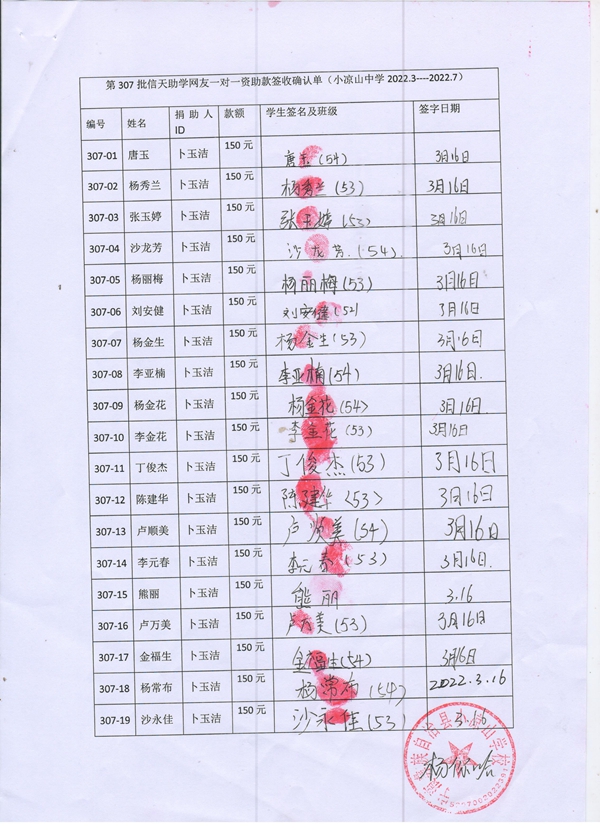 第 307 批信天助学网友一对一资助款签收确认单（小凉山中学 2022.3----2022.7）
编号 姓名 捐助人ID 款额 学生签名及班级 签字日期
307-01 唐玉 卜玉洁 150 元 唐玉(54) 3月16日
307-02 杨秀兰 卜玉洁 150 元 杨秀兰(53) 3月16日
307-03 张玉婷 卜玉洁 150 元 张玉婷(53) 3月16日
307-04 沙龙芳 卜玉洁 150 元 沙龙芳.(54) 3月16日
307-05 杨丽梅 卜玉洁 150 元 杨丽梅(53) 3月16日
307-06 刘安健 卜玉洁 150 元 刘安健(52) 3月16日
307-07 杨金生 卜玉洁 150 元 杨金生(53) 3月16日
307-08 李亚楠 卜玉洁 150 元 李亚楠(54) 3月16日.
307-09 杨金花 卜玉洁 150 元 杨金花(54) 3月16日.
307-10 李金花 卜玉洁 150 元 李金花(53) 3月16日
307-11 丁俊杰 卜玉洁 150 元 丁俊杰(53) 3月16日
307-12 陈建华 卜玉洁 150 元 陈建华(53) 3月16日
307-13 卢顺美 卜玉洁 150 元 卢顺美(54) 3月16日
307-14 李元春 卜玉洁 150 元 李元春(53) 3月16日.
307-15 熊丽 卜玉洁 150 元 熊丽 3.16
307-16 卢万美 卜玉洁 150 元 卢万美(53) 3月16日
307-17 金福生 卜玉洁 150 元 金福生(54) 3月16日
307-18 杨常布 卜玉洁 150 元 杨常布(54) 2022.3.16
307-19 沙永佳 卜玉洁 150 元 沙永佳(53) 3.16